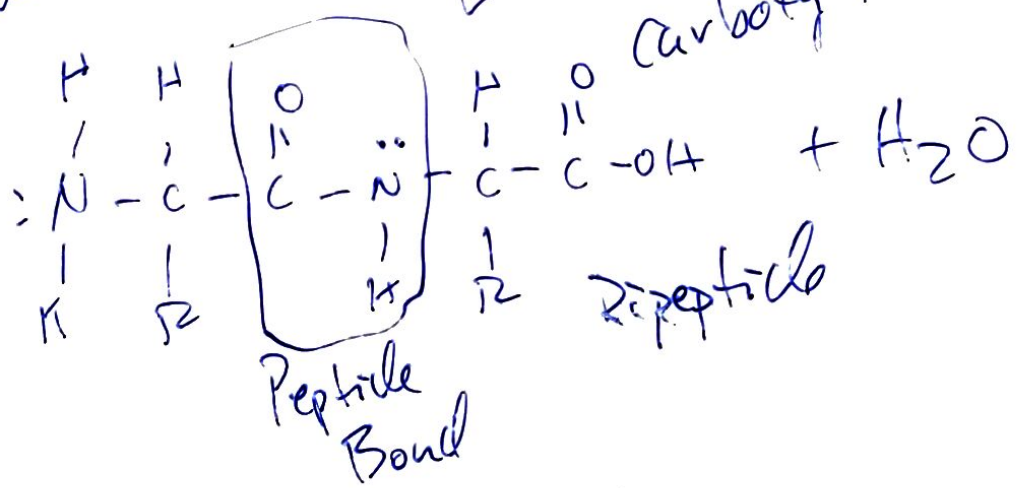 H H O H O
:N - C - C - N̈ - C - C - OH + H₂O
H R H R
Dipeptide
Peptide
Bond